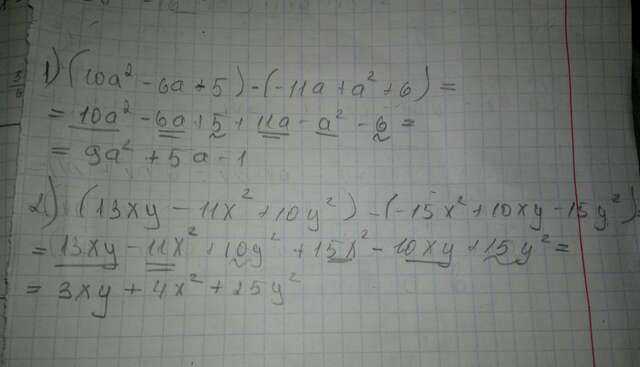 1) (10a² - 6a + 5) - (-11a + a² + 6) =
= 10a² - 6a + 5 + 11a - a² - 6 =
= 9a² + 5a - 1
2) (13xy - 11x² + 10y²) - (-15x² + 10xy - 15y²)
= 13xy - 11x² + 10y² + 15x² - 10xy + 15y² =
= 3xy + 4x² + 25y²